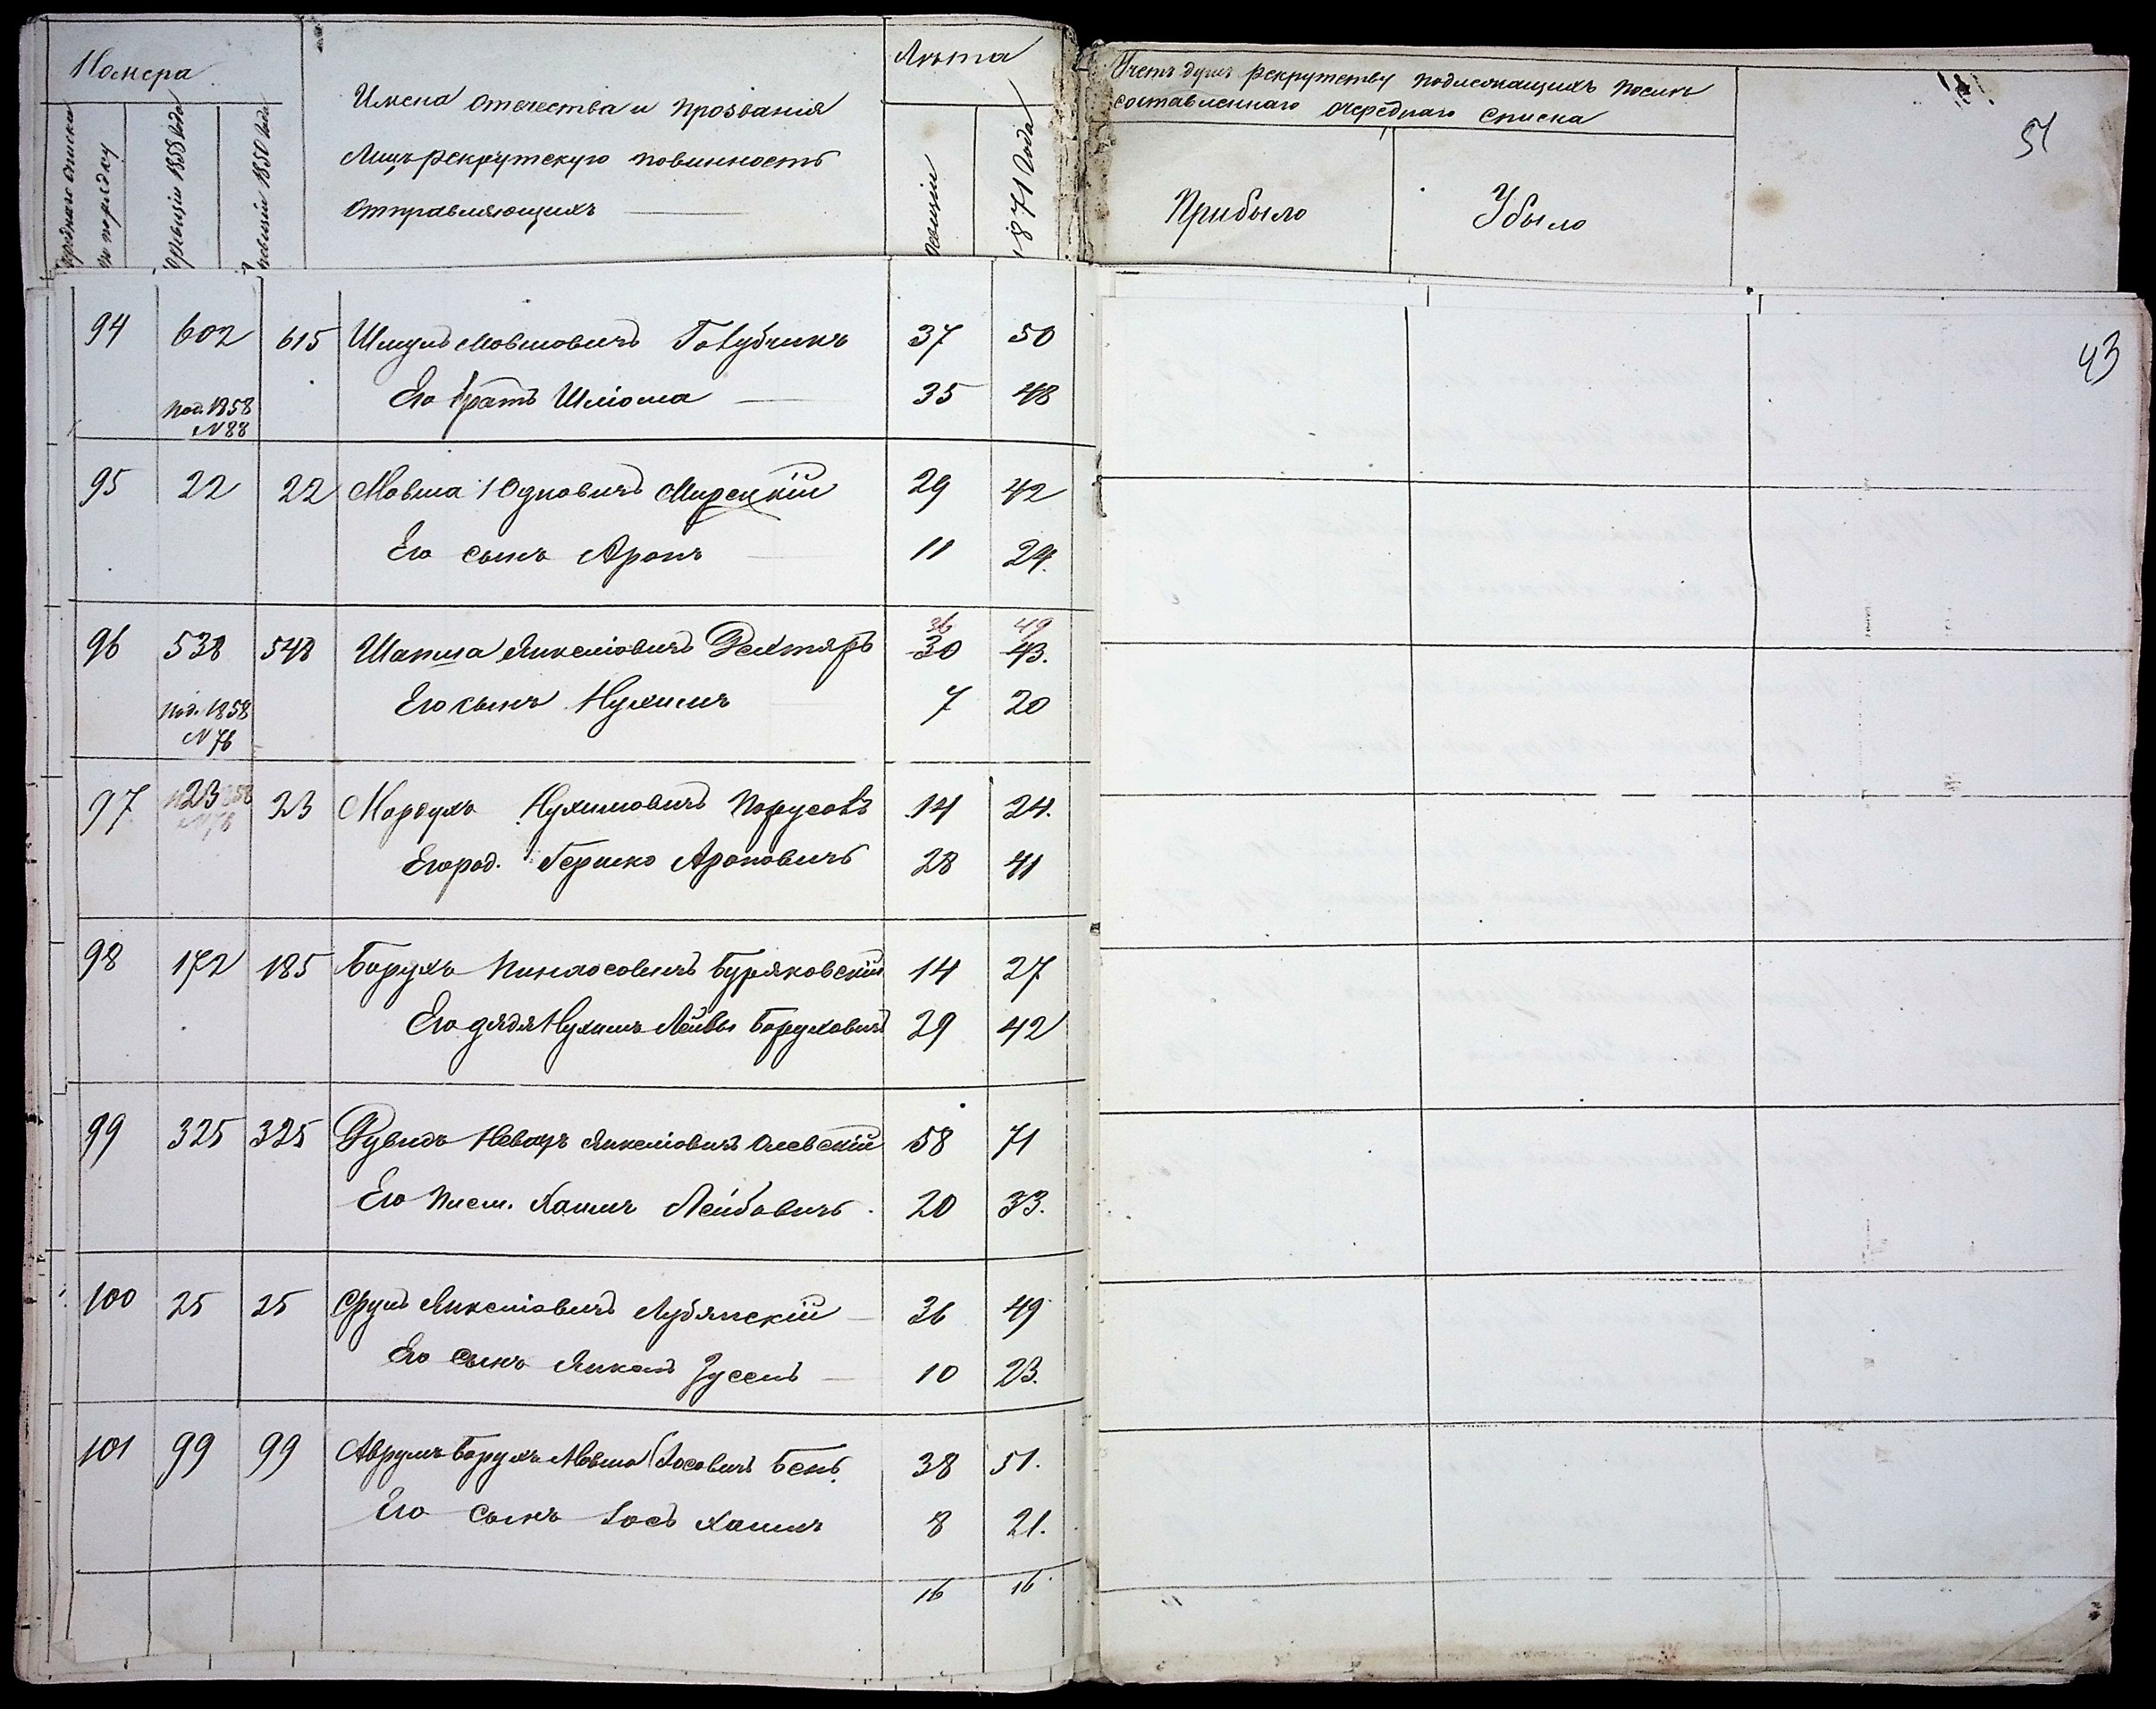 Номера
очереднаго списка
по порядку
ревизіи 1858 года
ревизіи 1850 года
Имена отечества и прозвания
лицъ рекрутскую повинность
отправляющихъ
Лѣта
ревизіи
1871 года
Счетъ душъ рекрутству подлежащихъ послѣ
составленнаго очереднаго списка
Прибыло
Убыло
51
43
94 602 615 Шмуль Мовшовичъ Голубчикъ 37 50
Его братъ Шліома 35 48
под. 1858
№ 88
95 22 22 Мовша Юдковичъ Мирскій 29 42
Его сынъ Аронъ 11 24.
36 49
96 538 548 Шапша Янкеліовичъ Дехтяръ 30 43.
Его сынъ Нухимъ 7 20
под. 1858
№ 76
97 23 23 Мордухъ Нухимовичъ Порусовъ 14 24.
Его род. Гершко Ароновичъ 28 41
98 172 185 Борухъ Пинхосовичъ Буряковскій 14 27
Его дядя Нухимъ Лейвы Боруховичъ 29 42
99 325 325 Янкеліовичъ Олевскій 58 71
Его плем. Хаимъ Лейбовичъ 20 33.
100 25 25 Сруль Янкеліовичъ Лубянскій 36 49
Его сынъ Янкель Зусель 10 23.
101 99 99 Аврумъ Борухъ Мовша Іосовичъ Бень 38 51.
Его сынъ Іосъ Хаимъ 8 21.
16 16